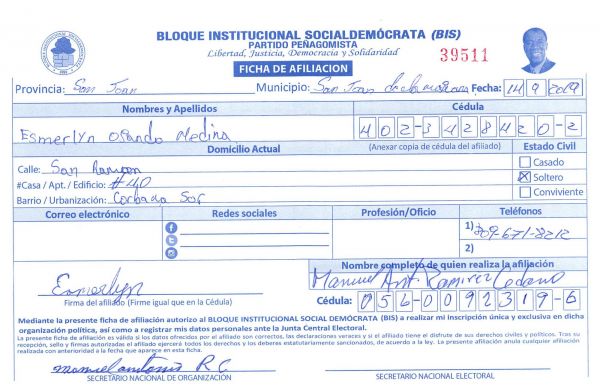 BLOQUE INSTITUCIONAL SOCIALDEMÓCRATA (BIS)
PARTIDO PEÑAGOMISTA
Libertad, Justicia, Democracia y Solidaridad
39511
FICHA DE AFILIACION
Provincia: San Juan Municipio: San Juan de la maguana Fecha: 14/9/2019
Nombres y Apellidos Cédula
Esmerlyn Ogando Medina 402-3428420-2
Domicilio Actual (Anexar copia de cédula del afiliado) Estado Civil
Calle: San Ramon Casado
#Casa / Apt. / Edificio: #40 Soltero
Barrio / Urbanización: Corbano Sur Conviviente
Correo electrónico Redes sociales Profesión/Oficio Teléfonos
1) 809-671-8212
2)
Nombre completo de quien realiza la afiliación
Esmerlyn Manuel Ant. Ramirez Cedano
Firma del afiliado (Firme igual que en la Cédula) Cédula: 056-0092319-6
Mediante la presente ficha de afiliación autorizo al BLOQUE INSTITUCIONAL SOCIAL DEMÓCRATA (BIS) a realizar mi inscripción única y exclusiva en dicha
organización política, así como a registrar mis datos personales ante la Junta Central Electoral.
La presente ficha de afiliación es válida si los datos ofrecidos por el afiliado son correctos, las declaraciones veraces y si el afiliado tiene el disfrute de sus derechos civiles y políticos. Tras su
recepción, sello y firmas autorizadas el afiliado ejercerá todos los derechos y los deberes estatutariamente sancionados, de acuerdo a la ley. La presente afiliación anula cualquier afiliación
realizada con anterioridad a la fecha que aparece en esta ficha.
manuel antonio R. C
SECRETARIO NACIONAL DE ORGANIZACIÓN SECRETARIO NACIONAL ELECTORAL